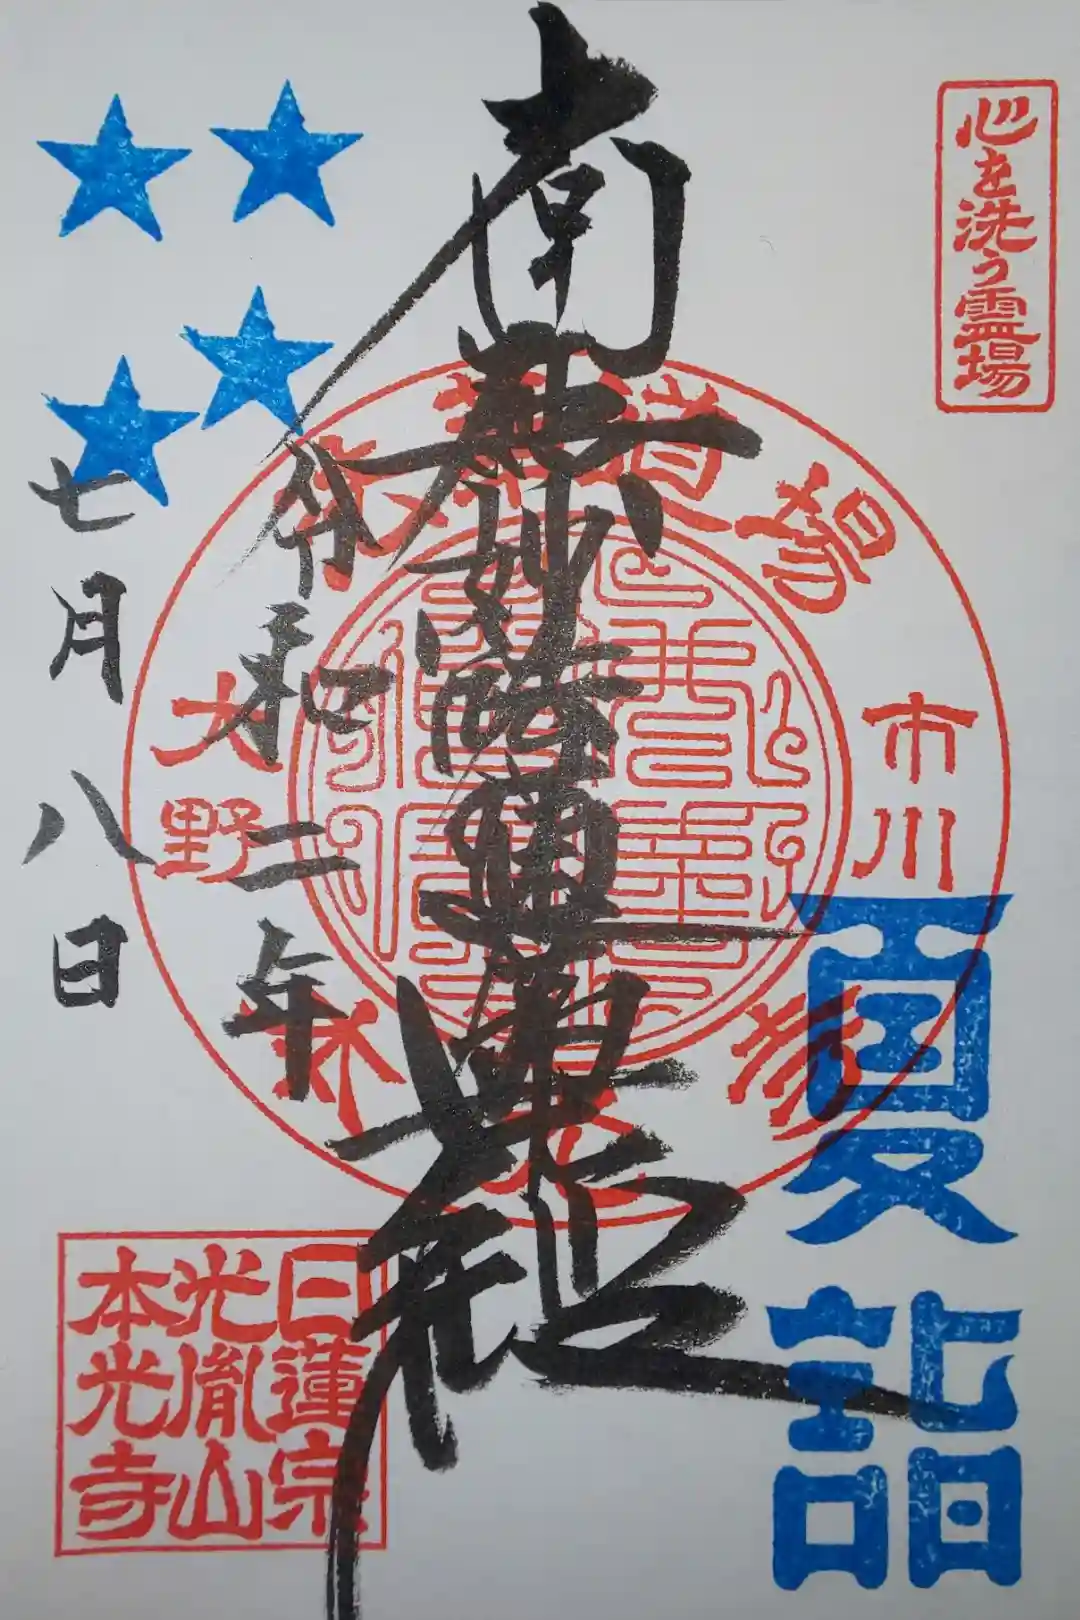 心を洗う霊場
夏詣
南無妙法蓮華経
令和二年
七月八日
市川
大野
道場
日蓮宗
光胤山
本光寺